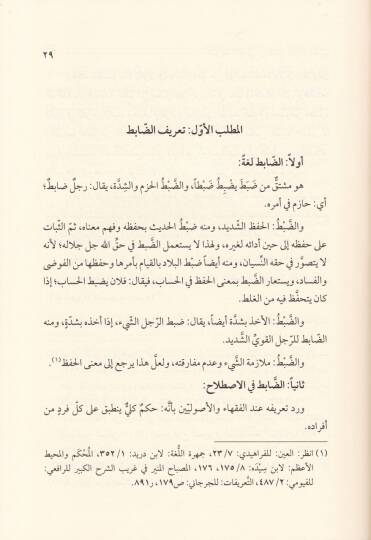 ٢٩
المطلب الأوّل: تعريف الضّابط
أولاً: الضّابط لغةً:
هو مشتقٌّ من ضَبَطَ يضْبِطُ ضَبْطاً، والضَّبْطُ الحزم والشِدَّة، يقال: رجلٌ ضابطٌ؛
أي: حازم في أمره.
والضَّبْطُ: الحفظ الشّديد، ومنه ضبْطُ الحديث بحفظه وفهم معناه، ثمّ الثّبات
على حفظه إلى حين أدائه لغيره، ولهذا لا يستعمل الضّبط في حقِّ الله جل جلاله؛ لأنه
لا يتصوَّر في حقه النِّسيان، ومنه أيضاً ضبْط البلاد بالقيام بأمرها وحفظها من الفوضى
والفساد، ويستعار الضَّبط بمعنى الحفظ في الحساب، فيقال: فلان يضبط الحساب؛ إذا
كان يتحفَّظ فيه من الغلط.
والضَّبْطُ: الأخذ بشدَّة أيضاً، يقال: ضبط الرّجل الشّيء، إذا أخذه بشدّةٍ، ومنه
الضّابط للرّجل القويِّ الشّديد.
والضَّبْطُ: ملازمة الشّيء وعدم مفارقته، ولعلَّ هذا يرجع إلى معنى الحفظ(١).
ثانياً: الضَّابط في الاصطلاح:
ورد تعريفه عند الفقهاء والأصوليّين بأنَّه: حكمٌ كليٌّ ينطبق على كلّ فردٍ من
أفراده.
(١) انظر: العين: للفراهيدي: ٧/ ٢٣، جمهرة اللُّغة: لابن دريد: ١/ ٣٥٢، المُحْكَم والمحيط
الأعظم: لابن سِيْدَه: ٨/ ١٧٥، ١٧٦، المصباح المنير في غريب الشرح الكبير للرافعي:
للفيومي: ٢/ ٤٨٧، التَّعريفات: للجرجاني: ص١٧٩، ر٨٩١.